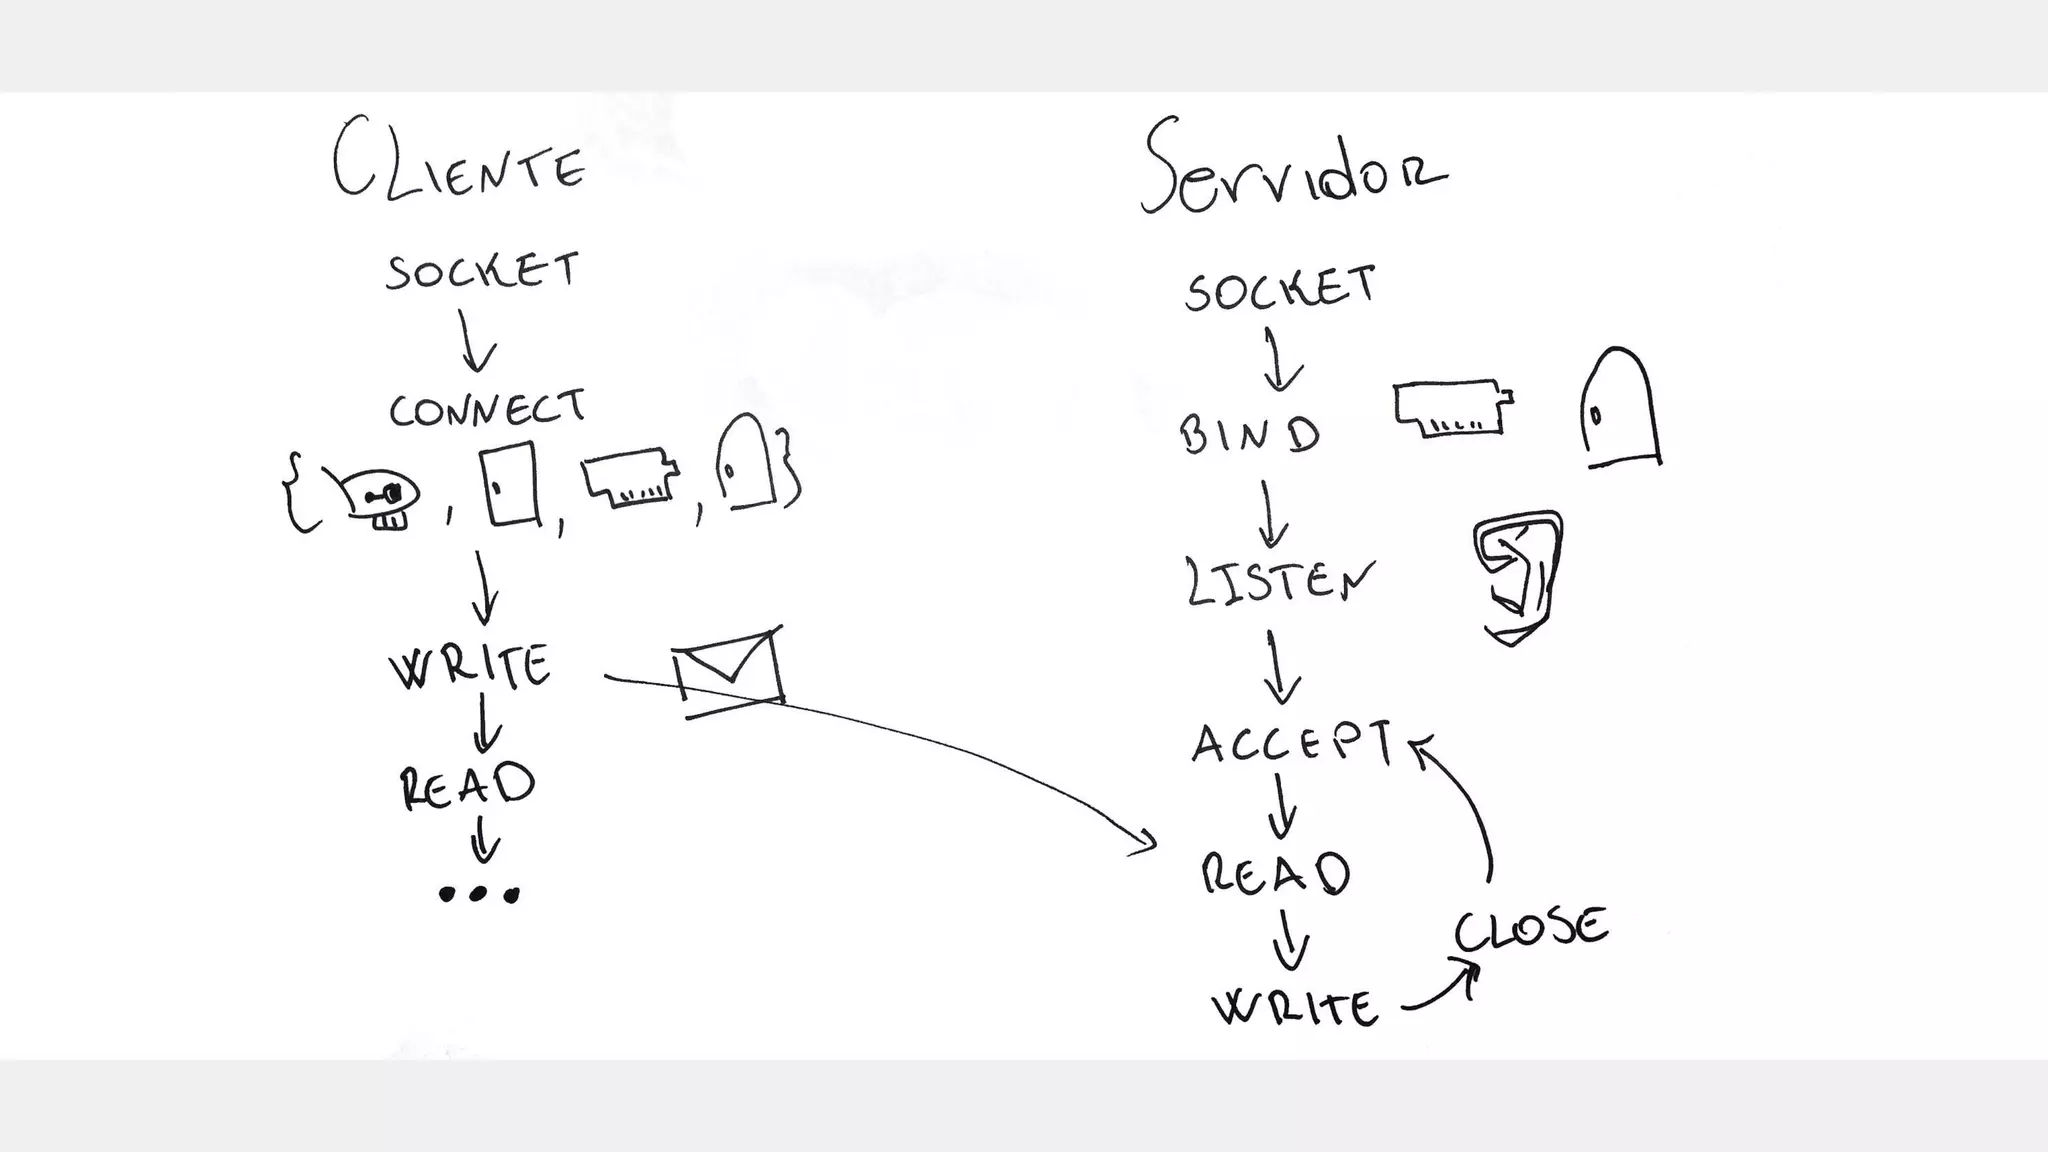 CLIENTE
SOCKET
CONNECT
{ , , , }
WRITE
READ
...
Servidor
SOCKET
BIND
LISTEN
ACCEPT
READ
WRITE
CLOSE